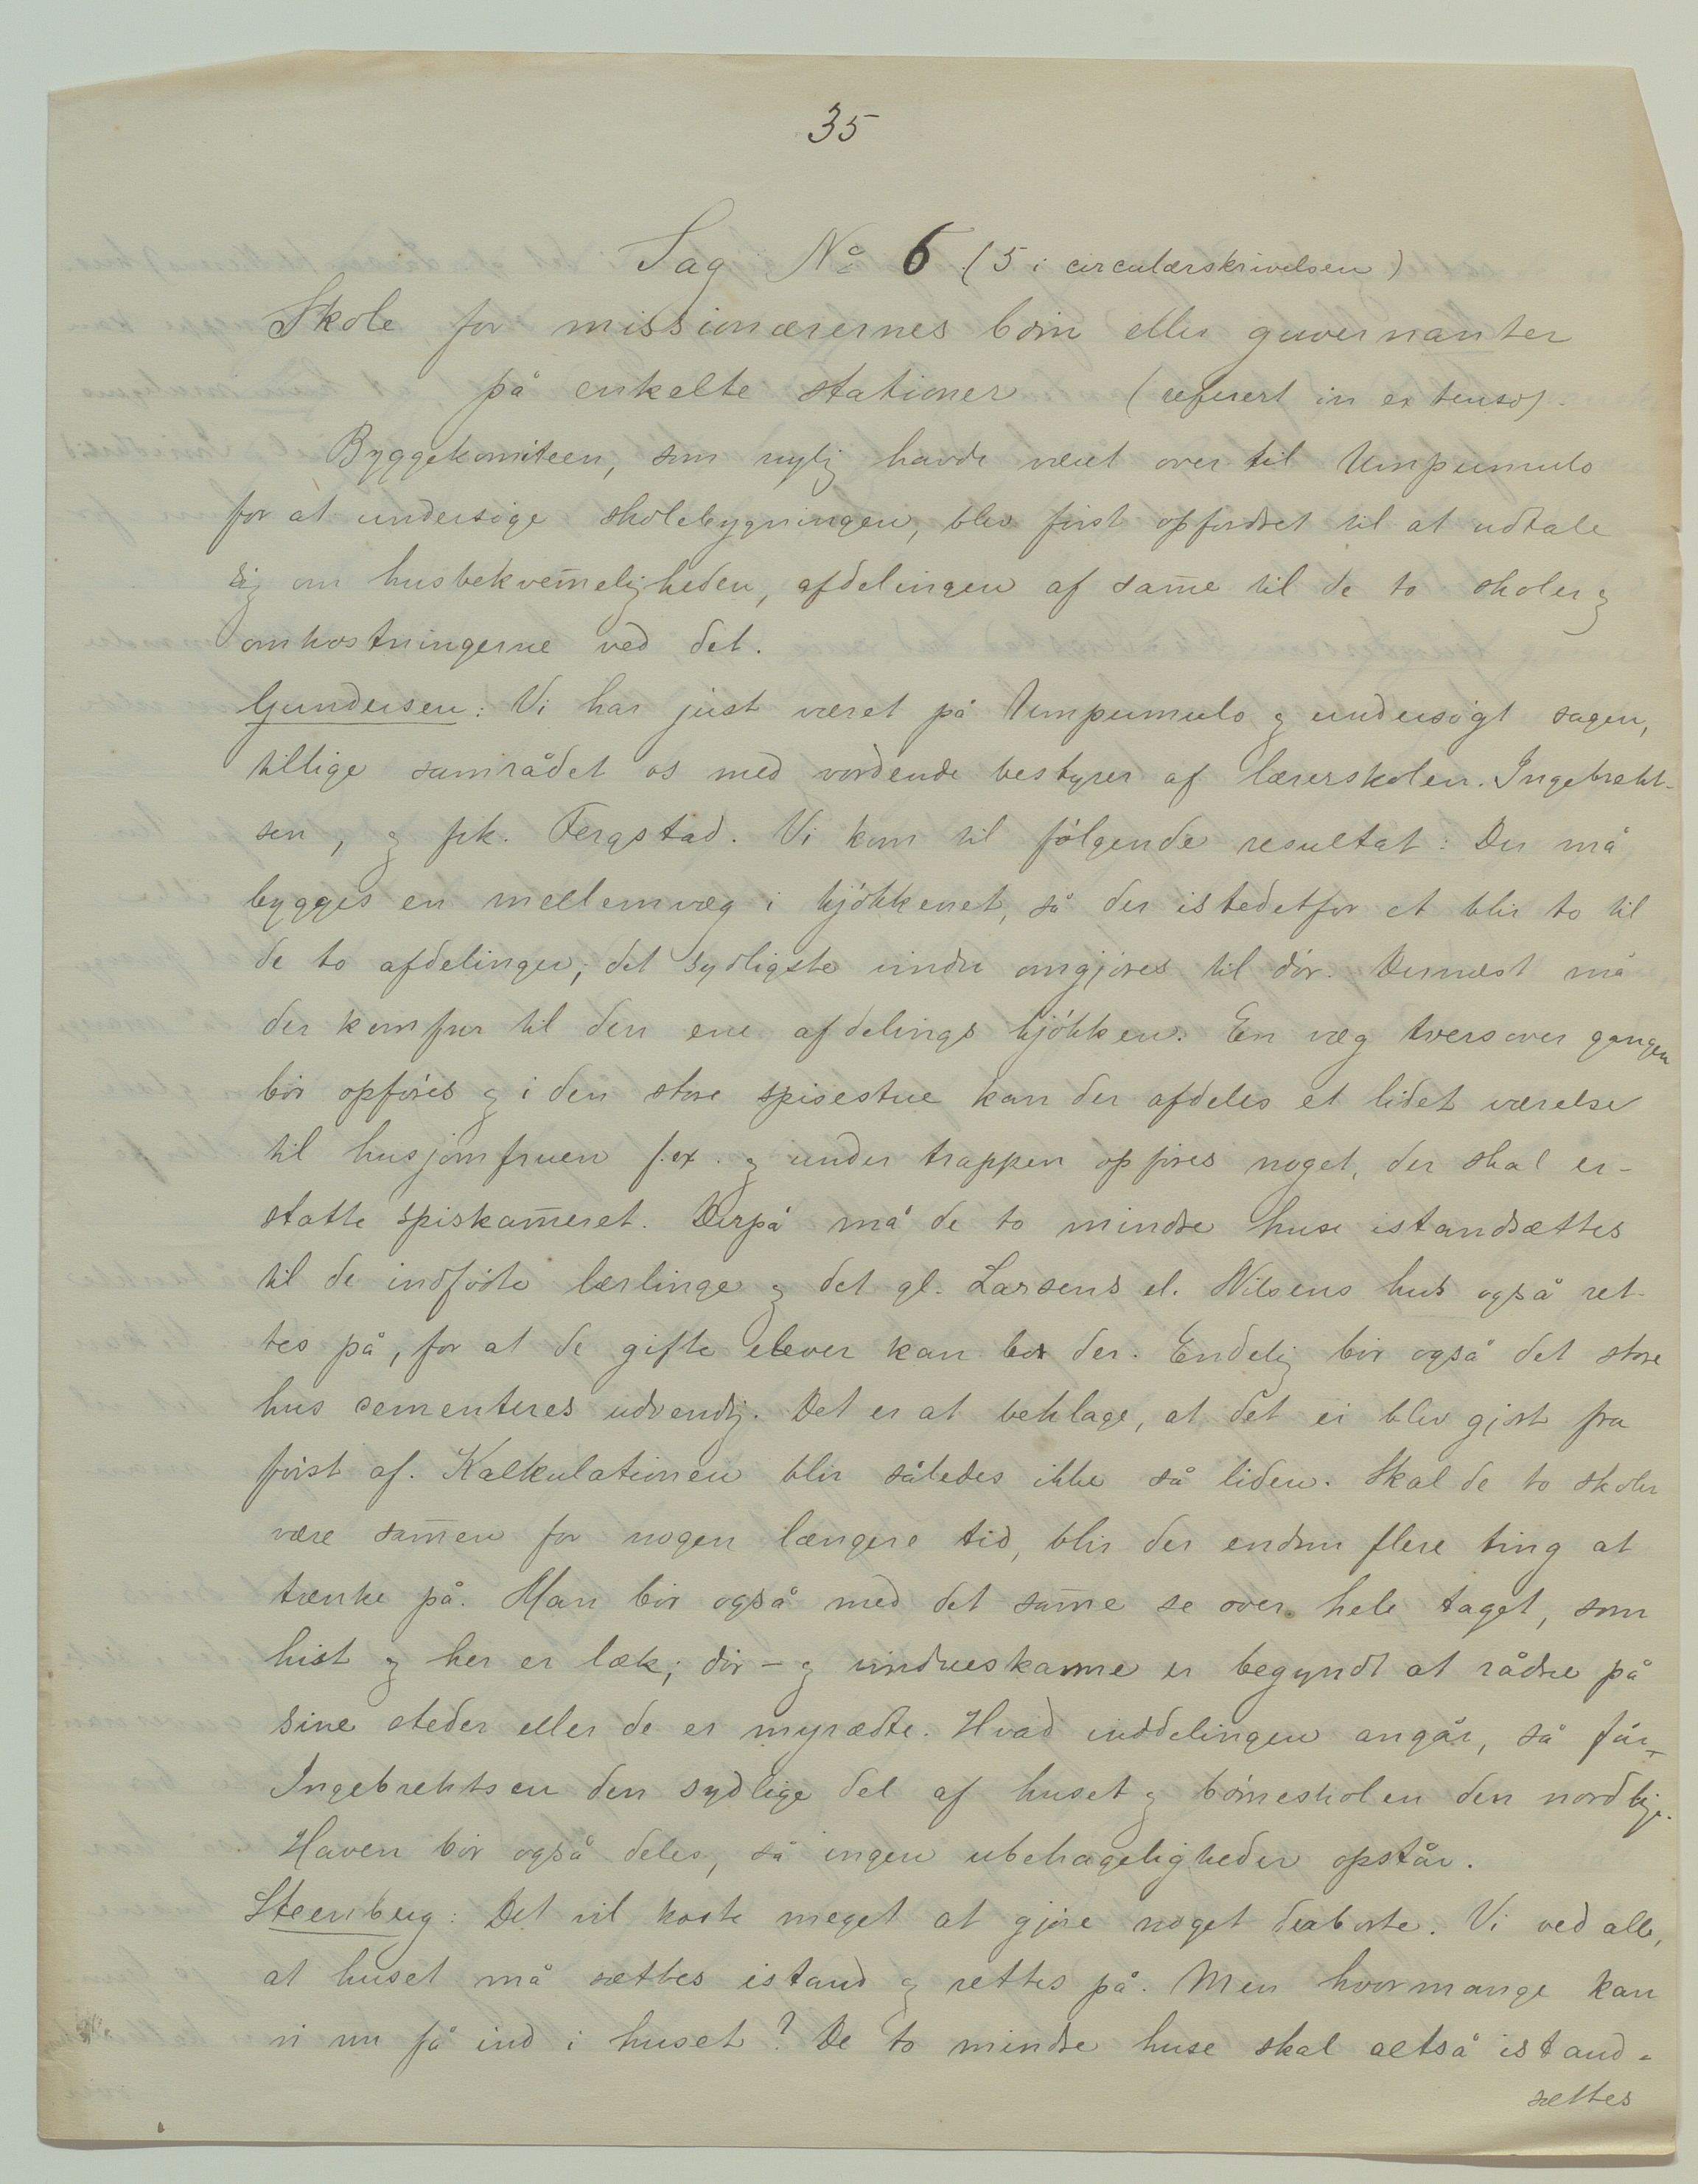 35
Sag No 6 (5 i circulærskrivelsen)
Skole for missionærernes börn eller guvernanter
på enkelte stationer (referert in extenso).
Byggekomiteen, som nylig havde været over til Umpumulo
for at undersöge skolebygningen, blev först opfordret til at udtale
sig om husbekvem̄eligheden, afdelingen af sam̄e til de to skoler og
omkostningerne ved det.
Gundersen: Vi har just været på Umpumulo og undersögt sagen,
tillige samrådet os med vordende bestyrer af lærerskolen. Ingebrekt-
sen, og frk. Tergstad. Vi kom til fölgende resultat: Der må
bygges en mellemvæg i kjökkenet, så der istedetfor et blir to til
de to afdelinger; det sydligste vindu omgjöres til dör. Dernæst må
der komfur til den ene afdelings kjökken. En væg tversover gangen
bör opföres og i den store spisestue kan der afdeles et lidet værelse
til husjomfruen f.ex. og under trappen opföres noget, der skal er-
statte spiskam̄eret. Derpå må de to mindre huse istandsættes
til de indfödte lærlinge og det gl. Larsens el. Nilsens hus også ret-
tes på, for at de gifte elever kan bo der. Endelig bör også det store
hus cementeres udvendig. Det er at beklage, at det ei blev gjort fra
först af. Kalkulationen blir således ikke så liden. Skal de to skoler
være sam̄en for nogen længere tid, blir der endnu flere ting at
tænke på. Man bör også med det sam̄e se over hele taget, som
hist og her er læk; dör- og vindueskarme er begyndt at rådne på
sine steder eller de er myrædte. Hvad inddelingen angår, så får
Ingebrektsen den sydlige del af huset og börneskolen den nordlige.
Haven bör også deles, så ingen ubehageligheder opstår.
Steenberg: Det vil koste meget at gjöre noget deroborte. Vi ved alle,
at huset må sættes istand og rettes på. Men hvormange kan
vi nu få ind i huset? De to mindre huse skal altså istand-
sættes